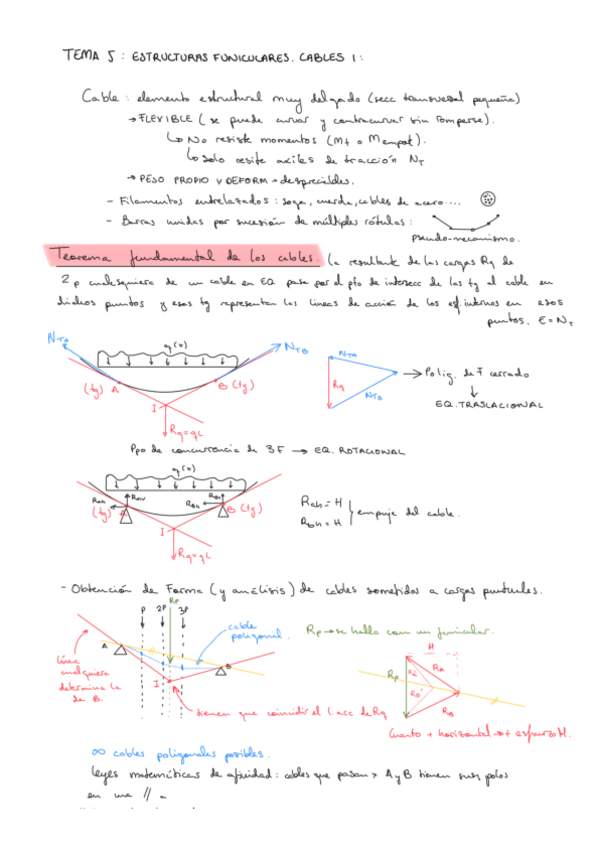 TEMA 5 : ESTRUCTURAS FUNICULARES. CABLES 1 :
Cable : elemento estructural muy delgado (secc transversal pequeña)
→ FLEXIBLE ( se puede curvar y contracurvar sin romperse).
↳ No resiste momentos (Mt o M empot).
↳ Solo resiste axiles de tracción NT
→ PESO PROPIO Y DEFORM → despreciables.
- Filamentos entrelazados : soga, cuerda, cables de acero....
- Barras unidas por sucesión de múltiples rótulas :
pseudo-mecanismo.
Teorema fundamental de los cables. La resultante de las cargas Rq de
2 p cualesquiera de un cable en EQ pasa por el pto de intersecc de las tg al cable en
dichos puntos y esas tg representan las líneas de acción de los esf. internos en esos
puntos. E = NT
q(x)
NTA
NTB
(tg) A
B (tg)
I
Rq = qL
NTA
Rq
NTB
→ Polig. de F cerrado
↓
EQ. TRASLACIONAL
Ppo de concurrencia de 3 F → EQ. ROTACIONAL
q(x)
RAH
RAV
RBV
RBH
(tg) A
B (tg)
I
Rq = qL
RAH = H
RBH = H
empuje del cable.
- Obtención de Forma (y análisis) de cables sometidos a cargas puntuales.
P 2P RP 3P
cable
poligonal.
RP → se halla con un funicular.
A
B
I
línea
cualquiera
determina la
de B.
tienen que coincidir el l. acc de Rq
H
RP
RA
RA'
RB'
RB
Cuanto + horizontal → + esfuerzo H.
∞ cables poligonales posibles.
Leyes matemáticas de afinidad : cables que pasan x A y B tienen sus polos
en una // a